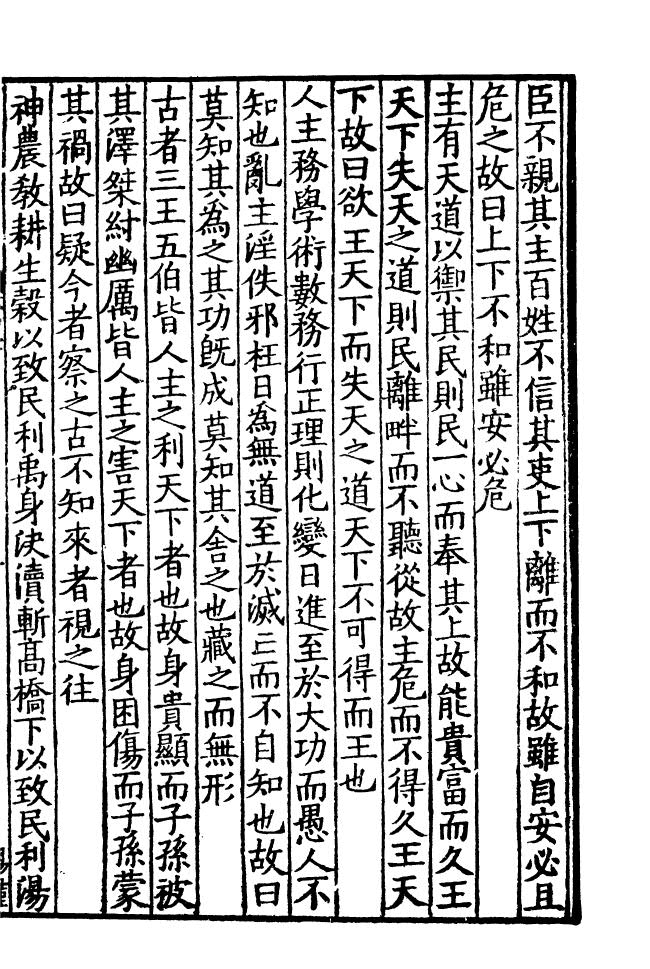 臣不親其主百姓不信其吏上下離而不和故雖自安必且
危之故曰上下不和雖安必危
主有天道以禦其民則民一心而奉其上故能貴富而久王
天下失天之道則民離畔而不聽從故主危而不得久王天
下故曰欲王天下而失天之道天下不可得而王也
人主務學術數務行正理則化變日進至於大功而愚人不
知也亂主淫佚邪枉日為無道至於滅亡而不自知也故曰
莫知其為之其功旣成莫知其舍之也藏之而無形
古者三王五伯皆人主之利天下者也故身貴顯而子孫被
其澤桀紂幽厲皆人主之害天下者也故身困傷而子孫蒙
其禍故曰疑今者察之古不知來者視之往
神農敎耕生穀以致民利禹身決瀆斬高橋下以致民利湯